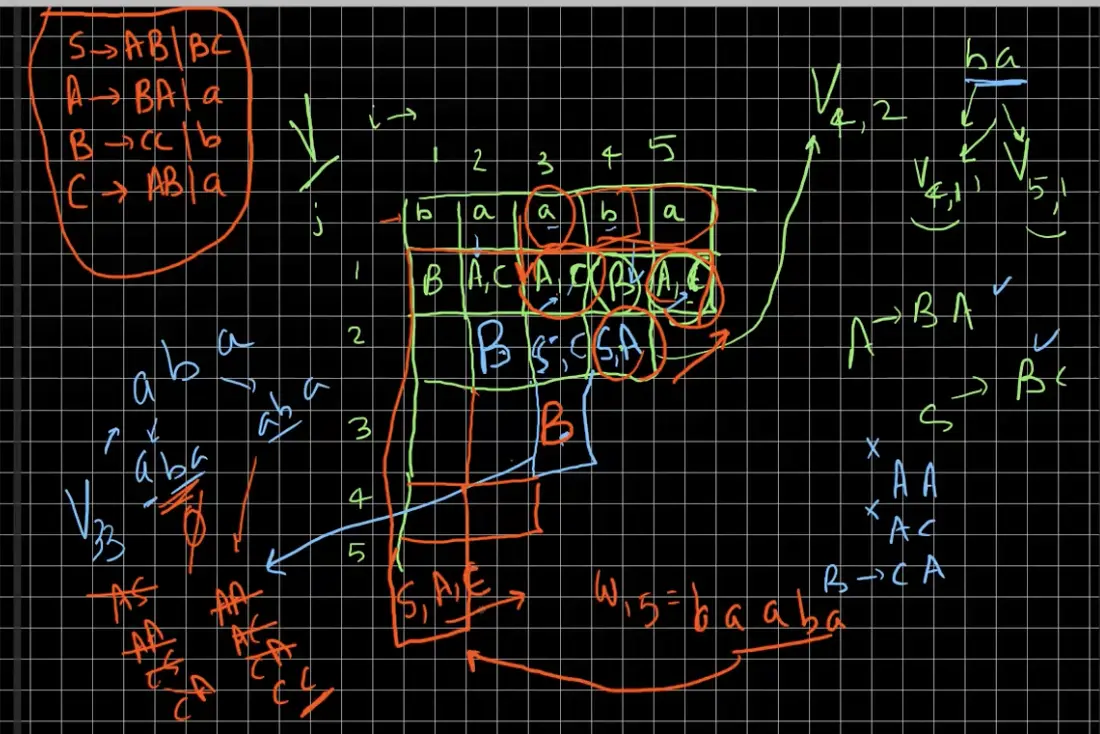 S → AB | BC
A → BA | a
B → CC | b
C → AB | a
V i →
1 2 3 4 5
j
→ b a a b a
1 B A,C A,C B A,C
2 B S,C S,A
3 B
4
5
S,A,C
W,5 = b a a b a
V4,2
b a
V4,1 V5,1
A → B A ✓
S → B C ✓
x A A
x A C
B → C A
a b a
a b a
a b a
V33
φ
AC
AA
CC
CA
AA
AC
CA
CC